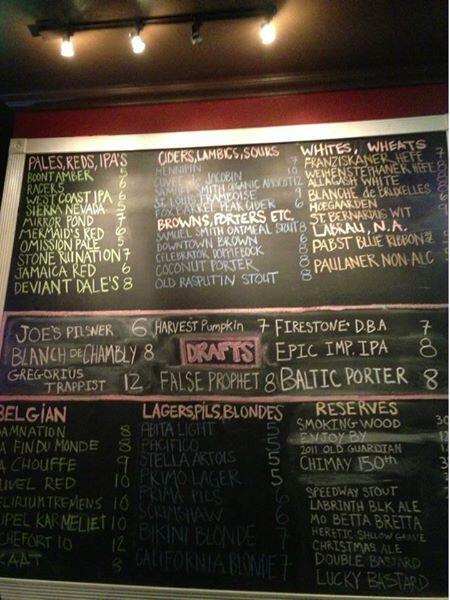 PALES, REDS, IPA'S
BOONT AMBER 5
RACER 5 6
WEST COAST IPA 6
SIERRA NEVADA 5
MIRROR POND
MERMAID'S RED 6
OMISSION PALE 5
STONE RUINATION 7
JAMAICA RED 6
DEVIANT DALE'S 8
CIDERS, LAMBICS, SOURS
HENNIPIN 7
JACOBIN
SAMUEL SMITH ORGANIC APRICOT 12
ST. LOUIS FRAMBOISE
FOX BARREL PEAR CIDER 6
BROWNS, PORTERS ETC.
SAMUEL SMITH OATMEAL STOUT 8
DOWNTOWN BROWN
CELEBRATOR DOPPLEBOCK
COCONUT PORTER
OLD RASPUTIN STOUT
WHITES, WHEATS
FRANZISKANER HEFE
WEIHENSTEPHANER HEFE
ALLAGASH WHITE
BLANCHE de BRUXELLES
HOEGAARDEN
ST. BERNARDUS WIT
PABST BLUE RIBBON
PAULANER NON-ALC
DRAFTS
JOE'S PILSNER 6
BLANCH DE CHAMBLY 8
GREGORIUS
TRAPPIST 12
HARVEST PUMPKIN 7
FALSE PROPHET 8
FIRESTONE D.B.A. 7
EPIC IMP. IPA 8
BALTIC PORTER 8
BELGIAN
AMNATION 8
A FIN DU MONDE 8
A CHOUFFE 9
UVEL RED 10
LIRIUM TREMENS 10
IPEL KARMELIET 10
CHEFORT 10 12
KAAT 8
LAGERS, PILS, BLONDES
ABITA LIGHT 5
PACIFICO 5
STELLA ARTOIS 5
PRIMO LAGER 5
PRIMA PILS 6
SCRIMSHAW 6
BIKINI BLONDE 7
CALIFORNIA BLONDE 7
RESERVES
SMOKING WOOD 30
ENJOY BY
2011 OLD GUARDIAN
CHIMAY 150th
SPEEDWAY STOUT
LABRINTH BLK ALE
MO BETTA BRETTA
HERETIC SHALLOW GRAVE
CHRISTMAS ALE
DOUBLE BASTARD
LUCKY BASTARD